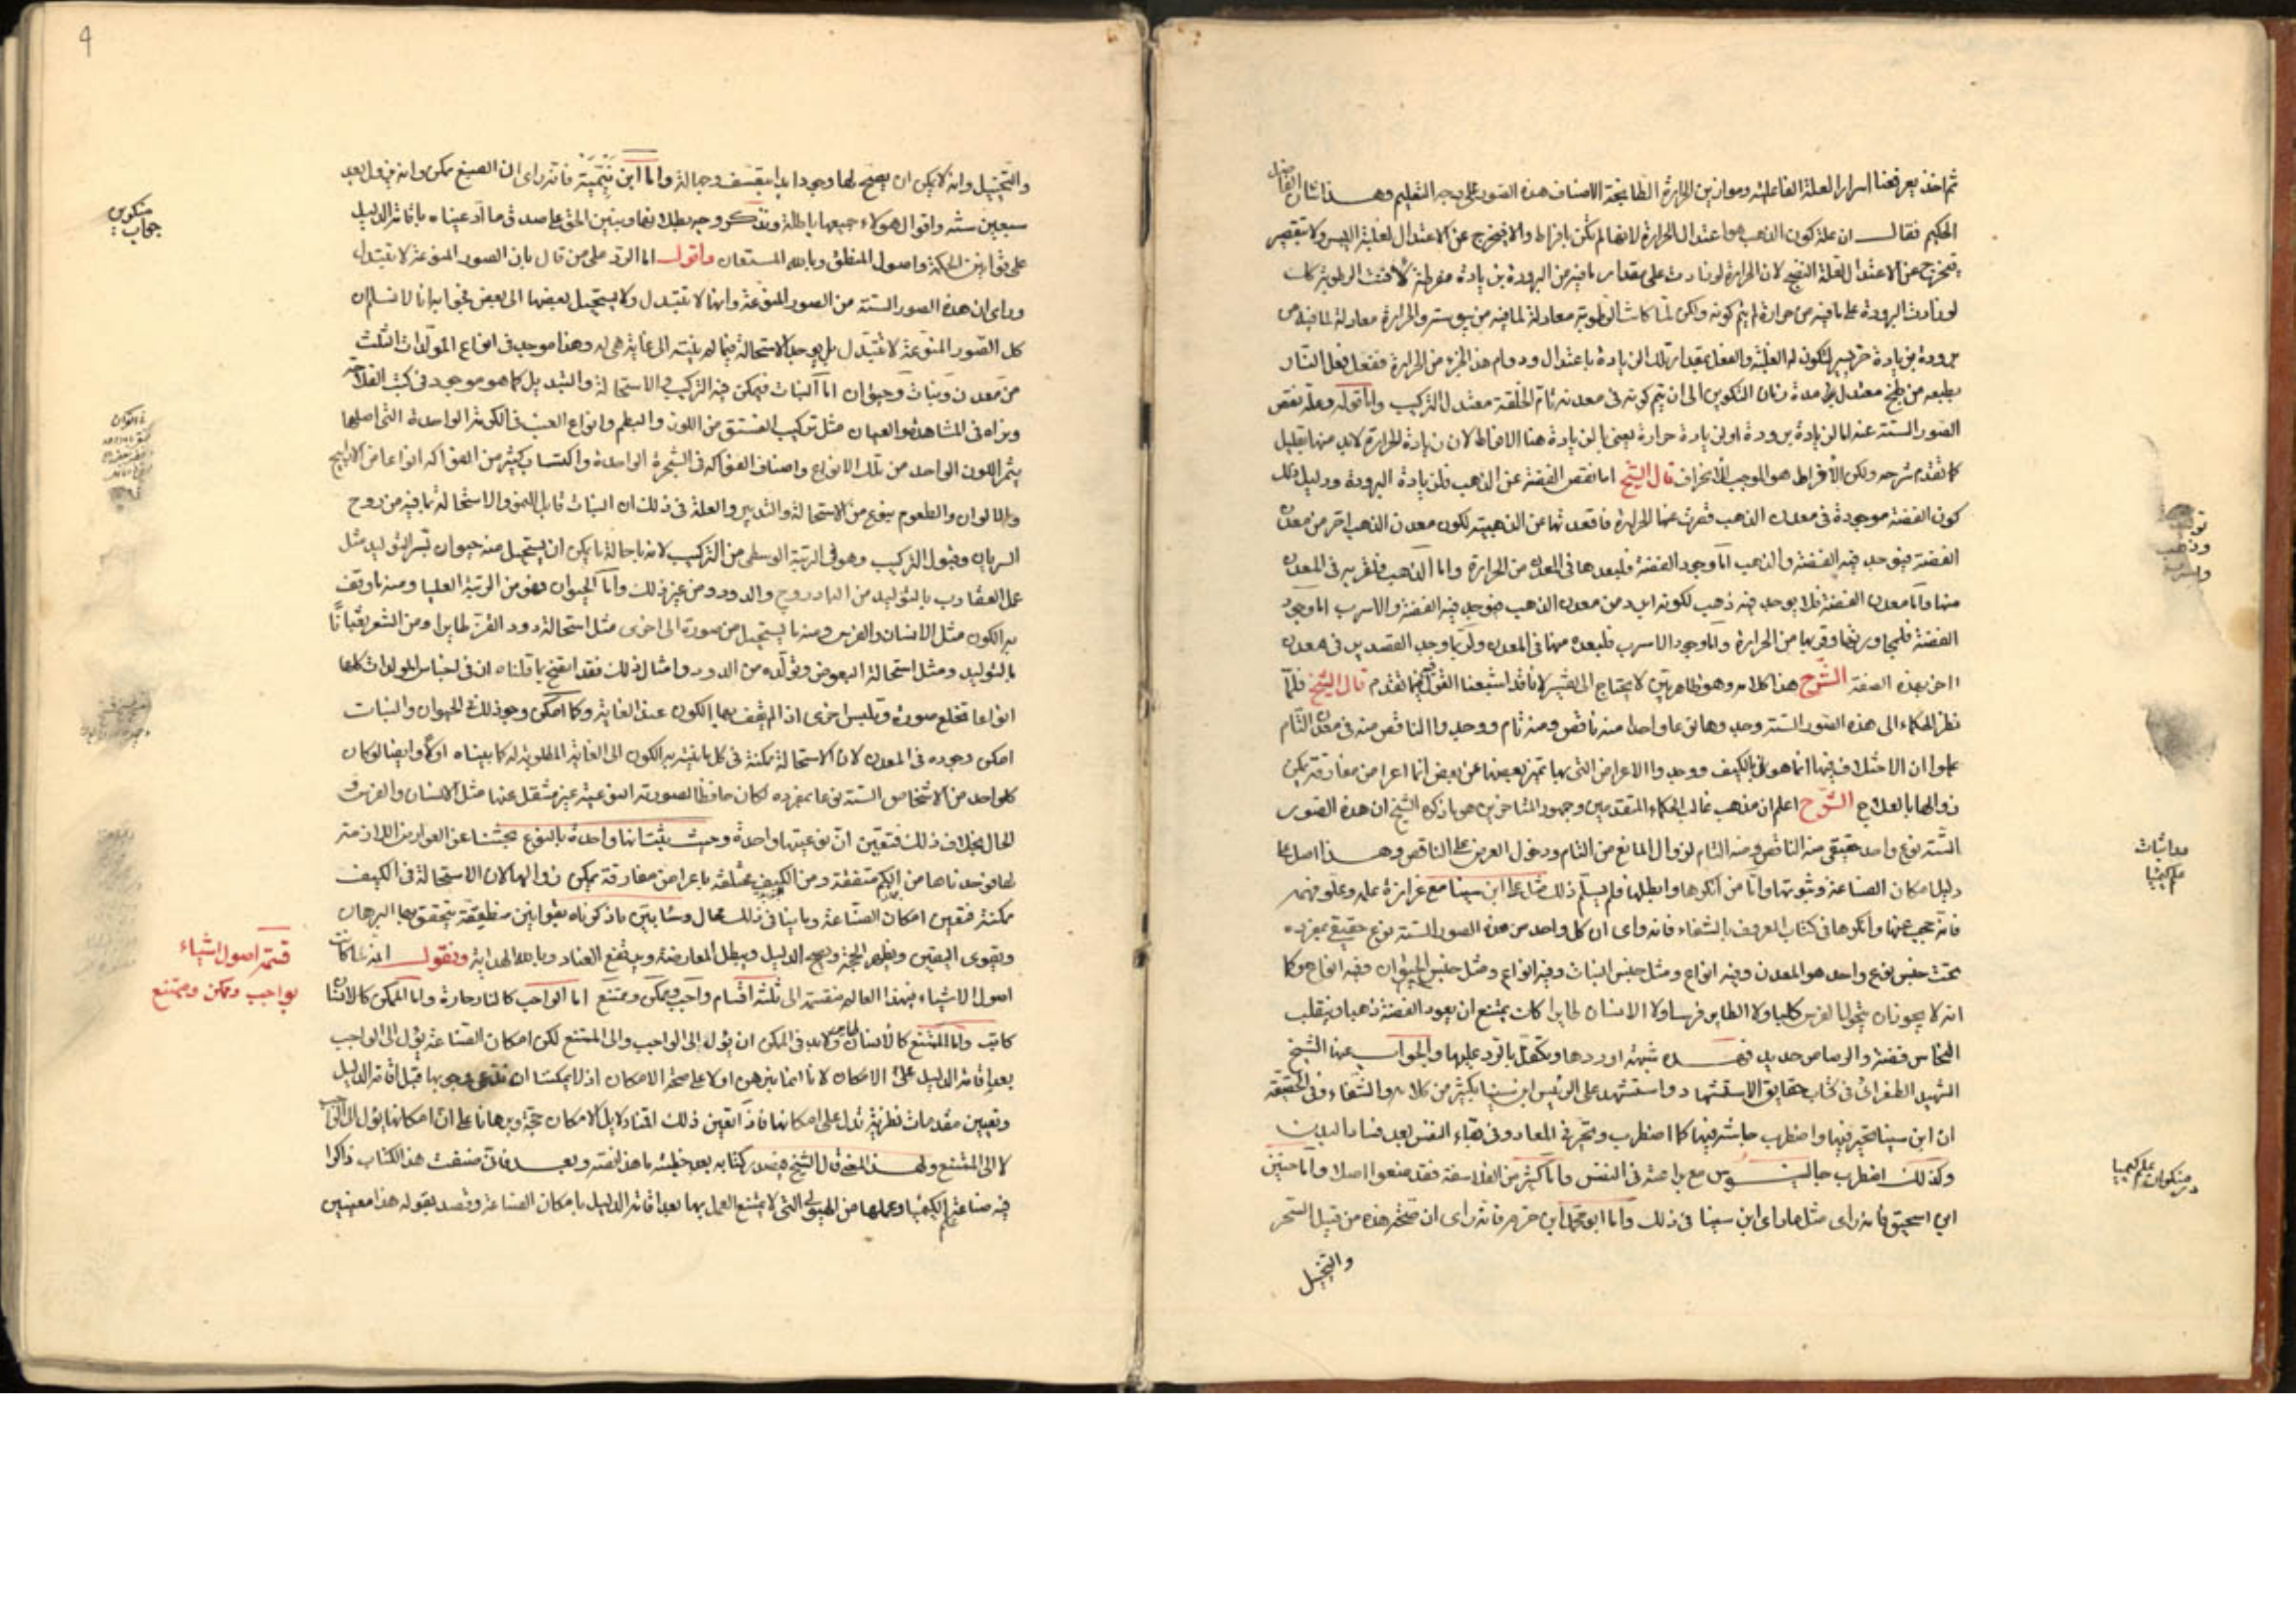 ثم اخذ يعرفنا اسرار العلة الفاعلية وموازين الحرارة الطابخة الاصناف هذه الصور على وجه التعليم وهذا شان الفاضل
الحكيم فقال ان علة كون الذهب هو اعتدال الحرارة لانها لم تكن بافراط والا فيخرج عن الاعتدال لغلبة اليبس ولا بتقصير
فتخرج عن الاعتدال لقلة النضج لان الحرارة لو زادت على مقدار ما فيه من البرودة زيادة مفرطة لافنت الرطوبة كما
لو زادت البرودة على ما فيه من حرارة لم يتم كونه ولكن لما كانت الرطوبة معادلة لما فيه من يبوسته والحرارة معادلة لما فيه من
برودة بزيادة لتكون له الغلبة والفعل بمقدار تلك الزيادة باعتدال ودوام هذا الجزء من الحرارة ففعل فعل النار
بطبعه من طبخ معتدل مدة زمان التكوين الى ان يتم كونه في معدنه تام الخلقة معتدل التركيب واما قوله وعلة نقص
الصور الستة عنه اما لزيادة برودة او لزيادة حرارة يعني بالزيادة هنا الافراط لان زيادة الحرارة لابد منها بقليل
كما تقدم شرحه ولكن الافراط هو الموجب للانحراف قال الشيخ اما نقص الفضة عن الذهب فلزيادة البرودة ودليل ذلك
كون الفضة موجودة في معدن الذهب قصرت عنها الحرارة فاقعدتها عن الذهبية لكون معدن الذهب احر من معدن
الفضة فيوجد فيه الفضة والذهب اما وجود الفضة فلبعدها في المعدن من الحرارة واما الذهب فلقربه في المعدن
منها واما معدن الفضة فلا يوجد فيه ذهب لكونه ابرد من معدن الذهب فيوجد فيه الفضة والاسرب اما وجود
الفضة فلمجاورتها وقربها من الحرارة واما وجود الاسرب فلبعده منها في المعدن ولن يوجد القصدير في معدن
احر بهذه الصفة الشرح هذا كلامه وهو ظاهر بين لا يحتاج الى تفسير لانا قد اشبعنا القول فيما تقدم قال الشيخ فلما
نظر الحكماء الى هذه الصور الستة وجدوها نوعا واحدا منه ناقص ومنه تام ووجدوا الناقص منه في معدن التام
علموا ان الاختلاف فيها انما هو في الكيف ووجدوا الاعراض التي بها تميز بعضها عن بعض انما اعراض مفارقة يمكن
زوالها بالعلاج الشرح اعلم ان مذهب غالب الحكماء المتقدمين وجمهور المتاخرين هو ما ذكره الشيخ ان هذه الصور
الستة نوع واحد حقيقي منه الناقص ومنه التام لزوال المانع من التام ودخول العرض على الناقص وهذا اصل على
دليل امكان الصناعة وثبوتها واما من انكرها وابطلها فلم يسلم ذلك مثل ابن سينا مع غزارة علمه وعلو فهمه
فانه عجب عنها وانكرها في كتابه المعروف بالشفاء فانه راى ان كل واحد من هذه الصور الستة نوع حقيقي بمفرده
تحت جنس نوع واحد هو المعدن وفيه انواع ومثل جنس النبات وفيه انواع ومثل جنس الحيوان وفيه انواع هو كما
انه لا يجوز ان يتحول الفرس كلبا ولا الطاير فرسا ولا الانسان طايرا كان يمتنع ان يعود الفضة ذهبا وينقلب
النحاس فضة والرصاص حديد فهذه شبهة اوردها وتكفل بالرد عليها والجواب عنها الشيخ
الشهيد الطغرائي في كتاب حقايق الاستشهاد واستشهد على الرئيس ابن سينا بكثير من كلامه والشفاء وفي الحقيقة
ان ابن سينا تحير فيها واضطرب جاشه فيها كما اضطرب وتحير في المعاد وفي بقاء النفس بعد فناء البدن
وكذلك اضطرب جالينوس مع براعته في النفس واما كثير من الفلاسفة فقد منعوا اصلا واما حنين
ابن اسحق فانه راى مثل ما راى ابن سينا في ذلك واما ابو محمد ابن حزم فانه راى ان صحة هذه من قبيل السحر
والتخيل
مدائبات
علم كيميا
در منكران علم كيميا
والتخييل وانه لا يمكن ان يصح لها وجود ابدا بتعسف وجهالة واما ابن تيمية فانه راى ان الصبغ ممكن وانه يزول بعد
سبعين سنة واقوال هولاء جميعها باطلة ونذكر وجه بطلانها ونبين الحق على صدق ما ادعيناه باقامة الدليل
على قوانين الحكمة واصول المنطق وبالله المستعان واقول اما الرد على من قال بان الصور المنوعة لا تتبدل
وراى ان هذه الصور الستة من الصور المنوعة وانها لا تتبدل ولا يستحيل بعضها الى بعض فجوابه انا لا نسلم ان
كل الصور المنوعة لا تتبدل بل يوجد الاستحالة فيما لم ينته الى غاية هي له وهذا موجب في انواع المولدات الثلث
من معدن ونبات وحيوان اما النبات فيمكن فيه التركيب والاستحالة والتبديل كما هو موجود في كتب الفلاحة
ونراه في المشاهدة والعيان مثل تركيب الفستق من اللوز والبطم وانواع العنب في الكرمة الواحدة التي اصلها
يثمر اللون الواحد من تلك الانواع واصناف الفواكه في الشجرة الواحدة واكتساب كثير من الفواكه انواعا من الارابيج
والالوان والطعوم بنوع من الاستحالة والتدبير والعلة في ذلك ان النبات قابل للنمو والاستحالة بما فيه من روح
السريان وقبول التركيب وهو في الرتبة الوسطى من التركيب لانه باحالة ما يمكن ان يستحيل منه حيوان تيسر التوليد مثل
عمل العقارب بالتوليد من الباذروج والدود ومن غير ذلك واما الحيوان فهو من الرتبة العليا ومنه ما وقف
به الكون مثل الانسان والفرس ومنه ما يستحيل من صورة الى اخرى مثل استحالة دود القز طايرا ومن الشعر ثعبانا
بالتوليد ومثل استحالة البعوض وتولده من الدود وامثال ذلك فقد اتضح ما قلناه ان في اجناس المولدات كلها
انواعا تخلع صورة وتلبس اخرى اذ لم يقف بها الكون عند الغاية وكما امكن وجود ذلك في الحيوان والنبات
امكن وجوده في المعدن لان الاستحالة ممكنة في كل ما لم ينته به الكون الى الغاية المطلوبة له كما بيناه اولا وايضا لو كان
كل واحد من الاشخاص الستة نوعا بمفرده لكان حافظا لصورته النوعية غير منتقل عنها مثل الانسان والفرس و
الحال بخلاف ذلك فتعين ان نوعيتها واحدة وحيث بينا انها واحدة بالنوع بحثنا عن العوارض اللازمة
لها فوجدناها من الكم متفقة ومن الكيف مختلفة باعراض مفارقة يمكن زوالها لان الاستحالة في الكيف
ممكنة فتعين امكان الصناعة
ويقوى اليقين ويظهر الحجة ويصح الدليل ويبطل المعارضة ويندفع العناد وبالله الهداية ونقول انه لما كانت
اصول الاشياء في هذا العالم منقسمة الى ثلثة اقسام واجب وممكن وممتنع اما الواجب كالنار حارة واما الممكن كالانسان
كاتب واما الممتنع كالانسان طاير ولابد في الممكن ان يؤل الى الواجب والى الممتنع لكن امكان الصناعة يؤل الى الواجب
بعد اقامة الدليل على الامكان لانا انما نبرهن اولا على صحة الامكان اذ لا يمكننا ان ندعى وجوبها قبل اقامة الدليل
وتعيين مقدمات نظرية تدل على امكانها فاذا تعين ذلك اقمنا دلايل الامكان حجة وبرهانا على ان امكانها يؤل الى الواجب
لا الى الممتنع ولهذا المعنى قال الشيخ في صدر كتابه بعد خطبته ما هذا نصه وبعد فاني صنفت هذا الكتاب ذاكرا
فيه صناعة الكيميا وعملها من الهيولى التي لا يمتنع العمل بها بعد اقامة الدليل بامكان الصناعة وقصد بقوله هذا معنيين
جواب منكرين
قسمة اصول اشياء
بواجب وممكن وممتنع
9